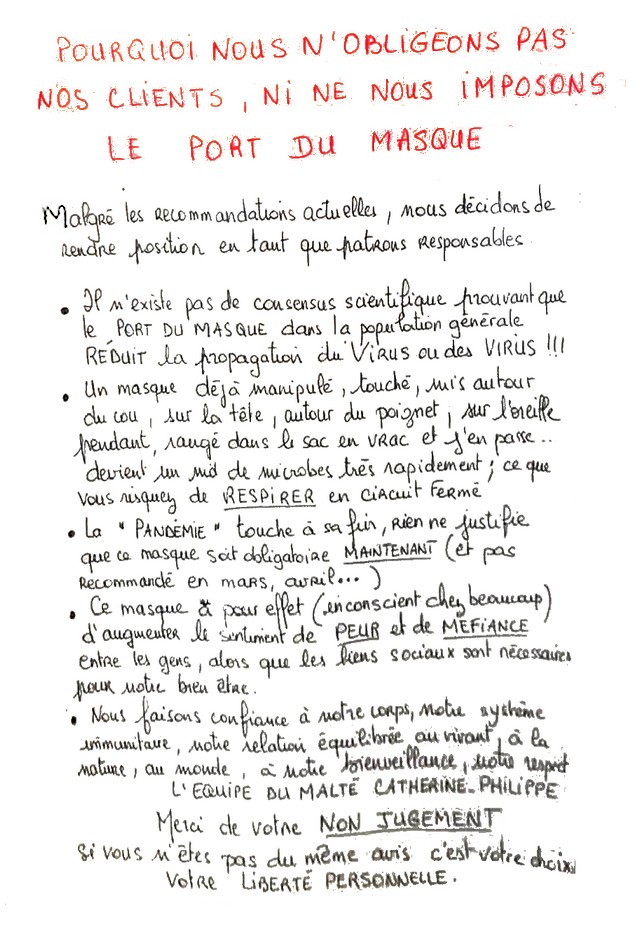 POURQUOI NOUS N'OBLIGEONS PAS
NOS CLIENTS, NI NE NOUS IMPOSONS
LE PORT DU MASQUE
Malgré les recommandations actuelles, nous décidons de
rendre position en tant que patrons responsables.
• Il n'existe pas de consensus scientifique prouvant que
le PORT DU MASQUE dans la population générale
RÉDUIT la propagation du VIRUS ou des VIRUS !!!
• Un masque déjà manipulé, touché, mis autour
du cou, sur la tête, autour du poignet, sur l'oreille
pendant, rangé dans le sac en vrac et j'en passe..
devient un nid de microbes très rapidement ; ce que
vous risquez de RESPIRER en circuit fermé
• La "PANDÉMIE" touche à sa fin, rien ne justifie
que ce masque soit obligatoire MAINTENANT (et pas
recommandé en mars, avril...)
• Ce masque a pour effet (inconscient chez beaucoup)
d'augmenter le sentiment de PEUR et de MÉFIANCE
entre les gens, alors que les liens sociaux sont nécessaires
pour notre bien être.
• Nous faisons confiance à notre corps, notre système
immunitaire, notre relation équilibrée au vivant, à la
nature, au monde, à notre bienveillance, notre respect
L'EQUIPE DU MALTÉ CATHERINE-PHILIPPE
Merci de votre NON JUGEMENT
Si vous n'êtes pas du même avis c'est votre choix
Votre LIBERTÉ PERSONNELLE.